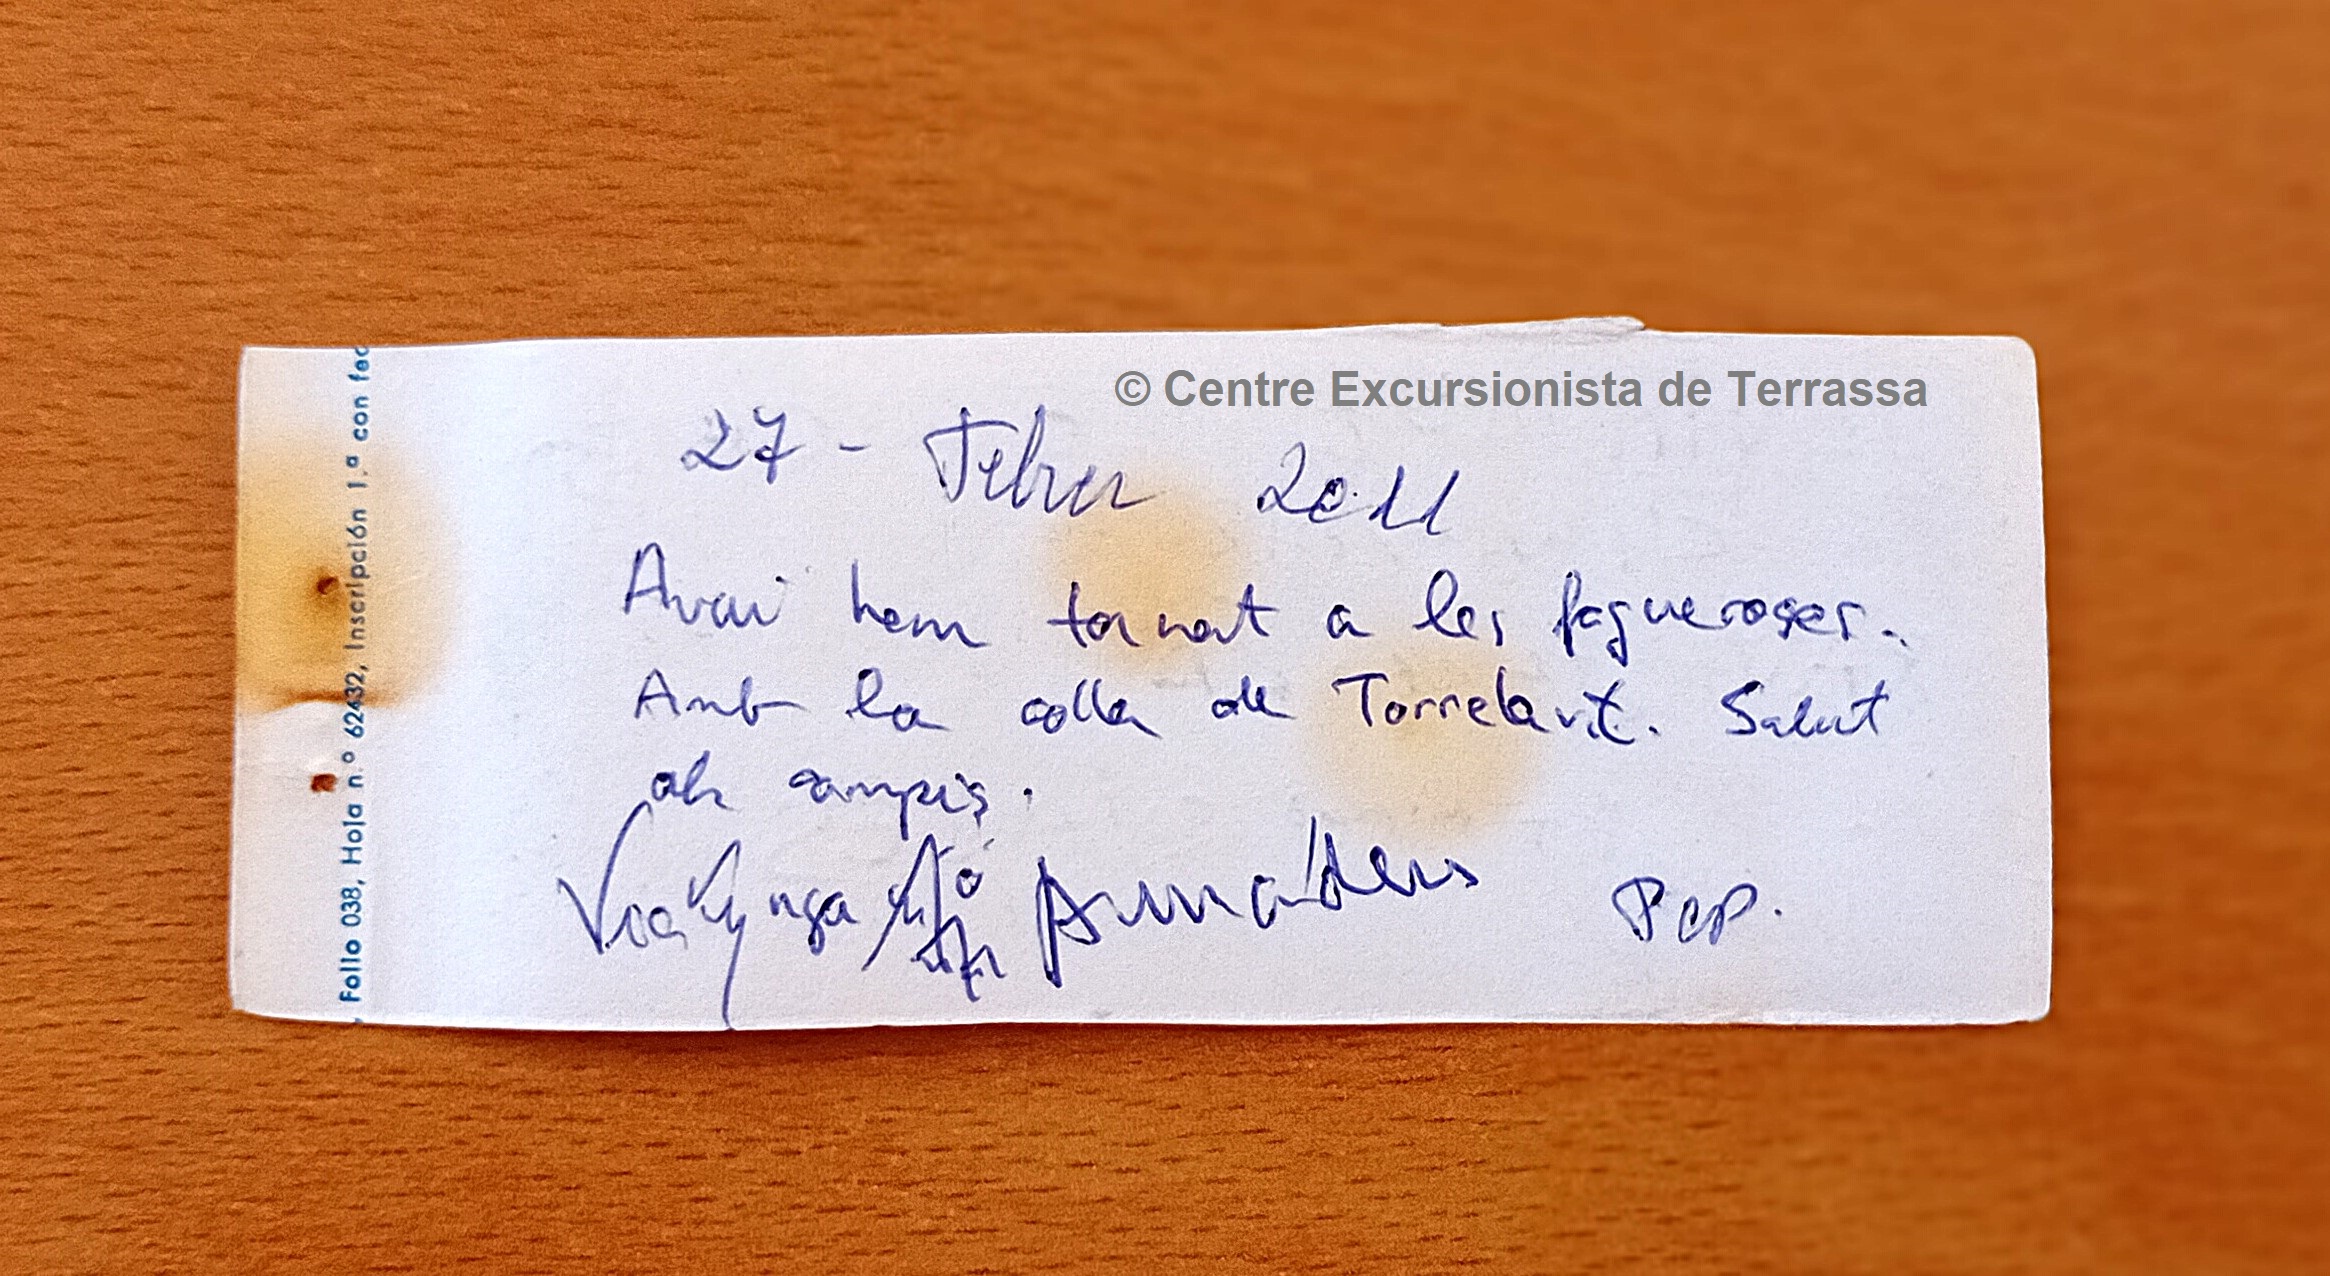 © Centre Excursionista de Terrassa
27 - Febrer 2011
Avui hem tornat a les fagueroses.
Amb la colla de Torrelavit. Salut
als campis.
Pep.
Folio 038, Hoja n.º 62432, Inscripción 1.ª con fec